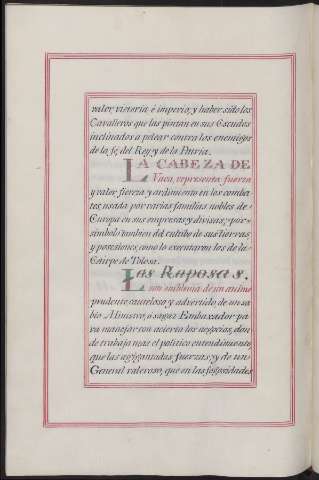 valor, victoria è imperio, y haber sido los
Cavalleros que las pintan en sus Escudos
inclinados a pelear contra los enemigos
de la fé, del Rey, y de la Patria.
LA CABEZA DE
Vaca, representa fuerza
y valor, fiereza, y ardimiento en los comba
tes, usada por varias familias nobles de
Europa en sus empresas, y divisas, y por
simbolo tambien del cultibo de sus tierras
y posesiones, como lo executaron los de la
Estirpe de Tolosa.
Las Raposas,
son simbolo de un animo
prudente, cauteloso, y advertido, de un sa
bio Ministro, ó sagaz Embaxador pa
ra manejar con acierto los negocios, don
de trabaja mas el politico entendimiento
que las agigantadas fuerzas; y de un
General valeroso, que en las